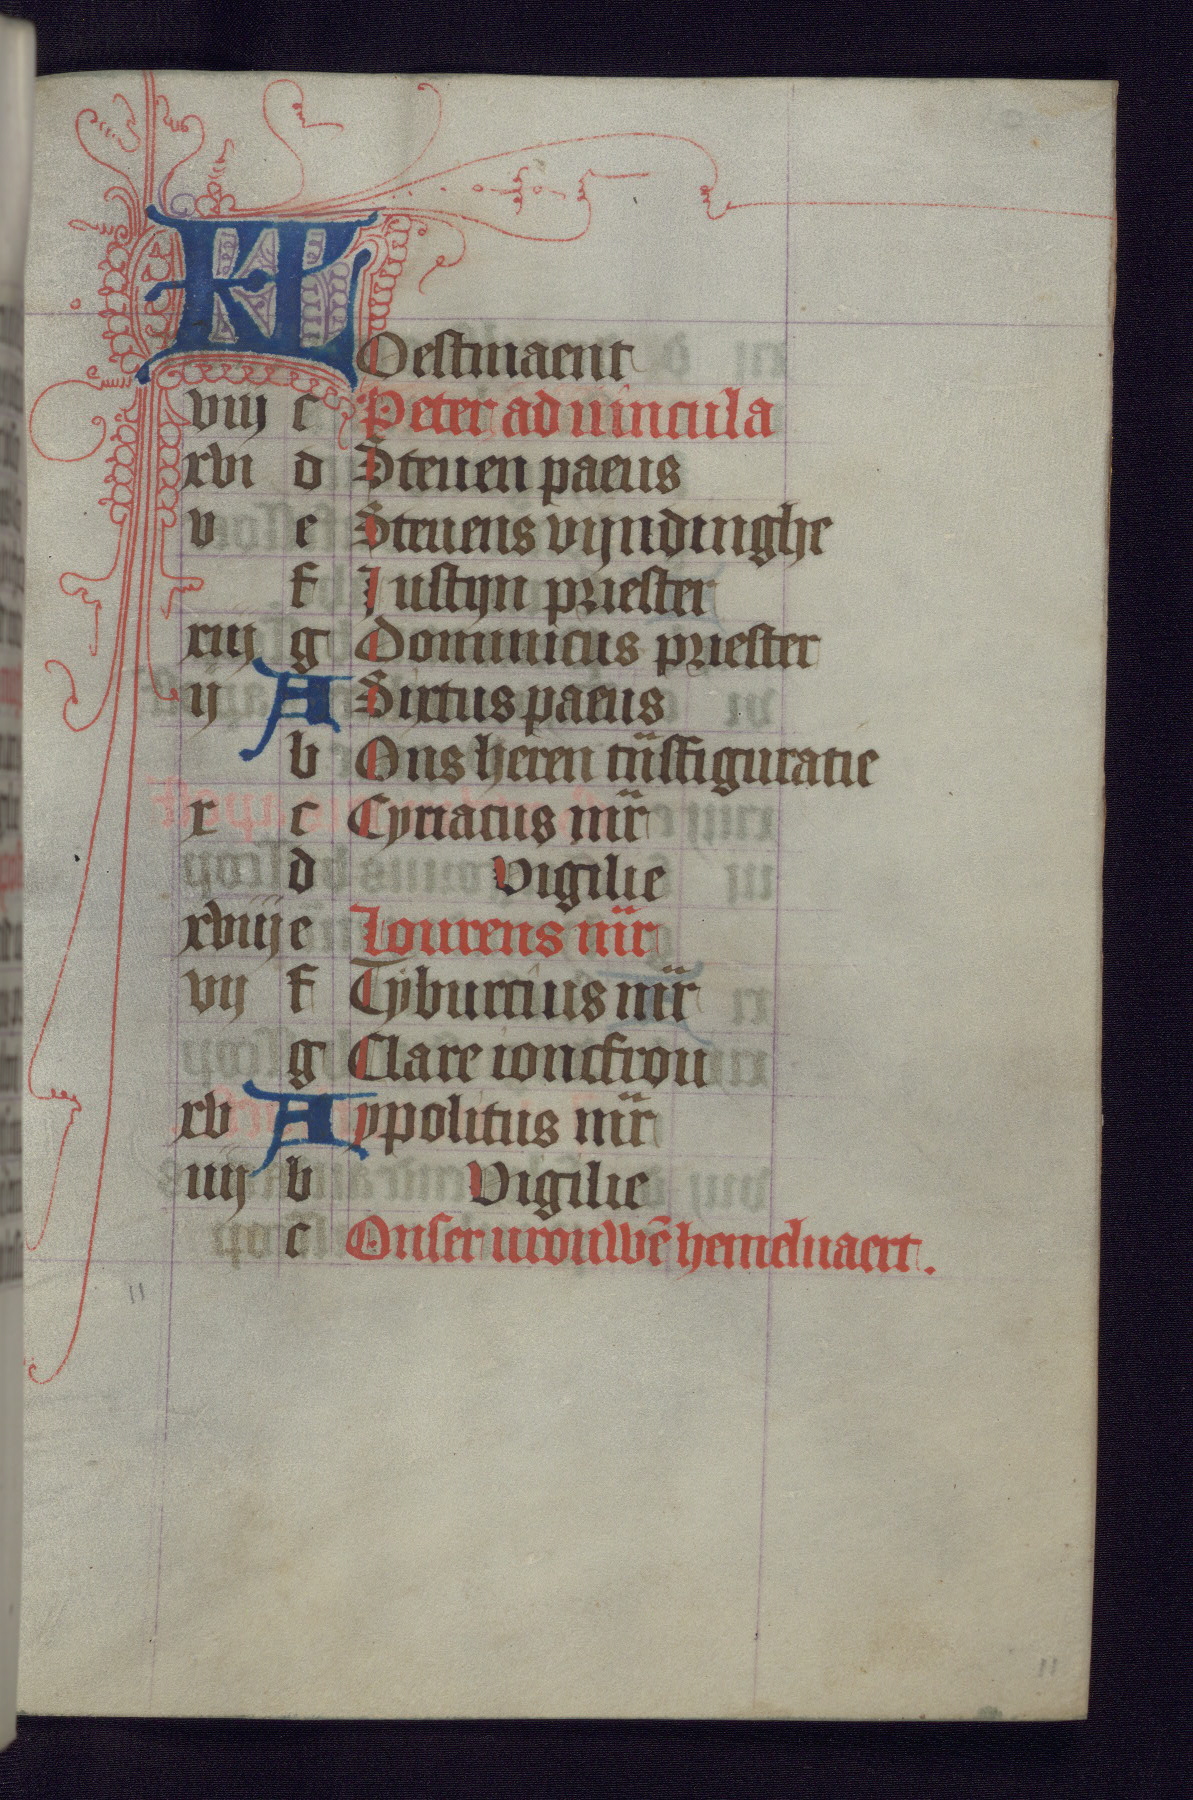 KL Oestmaent
viij c Peter ad vincula
xvi d Steuen paeus
v e Steuens vijndinghe
f Justijn priester
xiij g Dominicus priester
ij A Sixtus paeus
b Ons heren trāsfiguratie
x c Cyriacus mr̄
d Vigilie
xviij e Lourens mr̄
vij f Tyburcius mr̄
g Clare ioncfrou
xv A ypolitus mr̄
iiij b Vigilie
c Onser vrouwē hemeluaert.
11
11